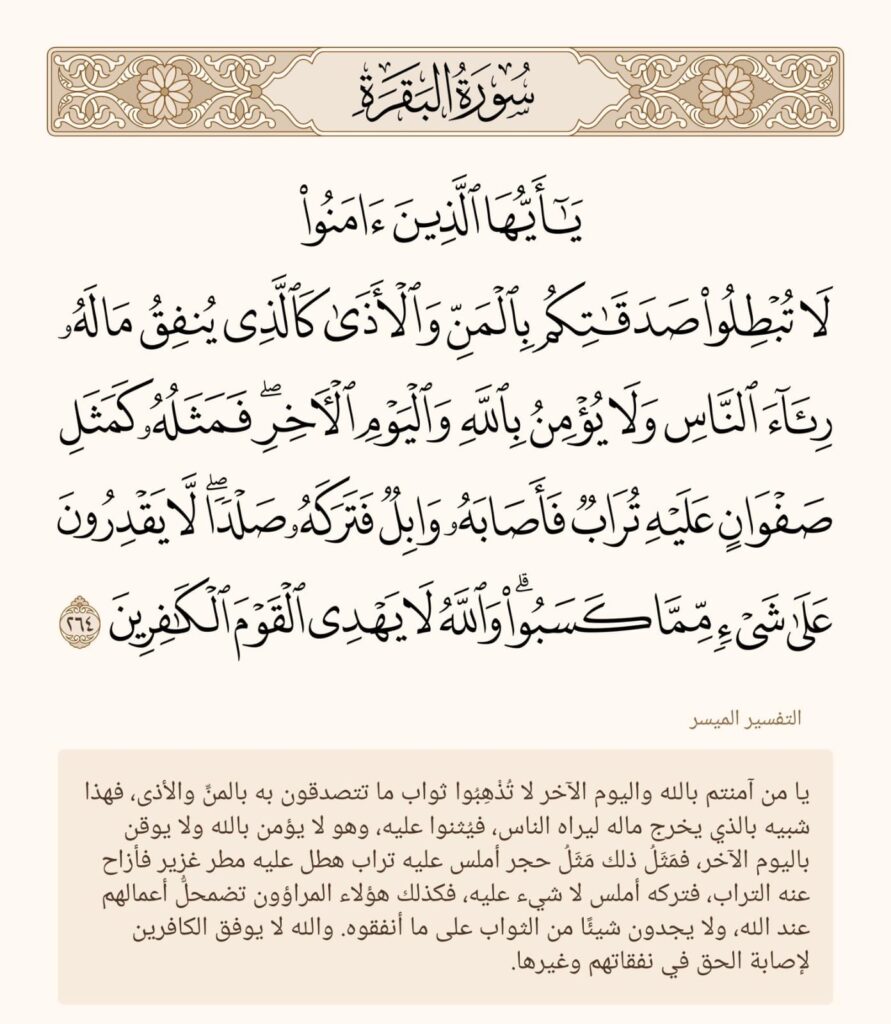 سُورَةُ البَقَرَةِ
يَـٰٓأَيُّهَا ٱلَّذِينَ ءَامَنُوا۟
لَا تُبْطِلُوا۟ صَدَقَـٰتِكُم بِٱلْمَنِّ وَٱلْأَذَىٰ كَٱلَّذِى يُنفِقُ مَالَهُۥ
رِئَآءَ ٱلنَّاسِ وَلَا يُؤْمِنُ بِٱللَّهِ وَٱلْيَوْمِ ٱلْـَٔاخِرِ ۖ فَمَثَلُهُۥ كَمَثَلِ
صَفْوَانٍ عَلَيْهِ تُرَابٌ فَأَصَابَهُۥ وَابِلٌ فَتَرَكَهُۥ صَلْدًا ۖ لَّا يَقْدِرُونَ
عَلَىٰ شَىْءٍ مِّمَّا كَسَبُوا۟ ۗ وَٱللَّهُ لَا يَهْدِى ٱلْقَوْمَ ٱلْكَـٰفِرِينَ ٢٦٤
التفسير الميسر
يا من آمنتم بالله واليوم الآخر لا تُذْهِبُوا ثواب ما تتصدقون به بالمنِّ والأذى، فهذا
شبيه بالذي يخرج ماله ليراه الناس، فيُثنوا عليه، وهو لا يؤمن بالله ولا يوقن
باليوم الآخر، فمَثَلُ ذلك مَثَلُ حجر أملس عليه تراب هطل عليه مطر غزير فأزاح
عنه التراب، فتركه أملس لا شيء عليه، فكذلك هؤلاء المراؤون تضمحلُّ أعمالهم
عند الله، ولا يجدون شيئًا من الثواب على ما أنفقوه. والله لا يوفق الكافرين
لإصابة الحق في نفقاتهم وغيرها.